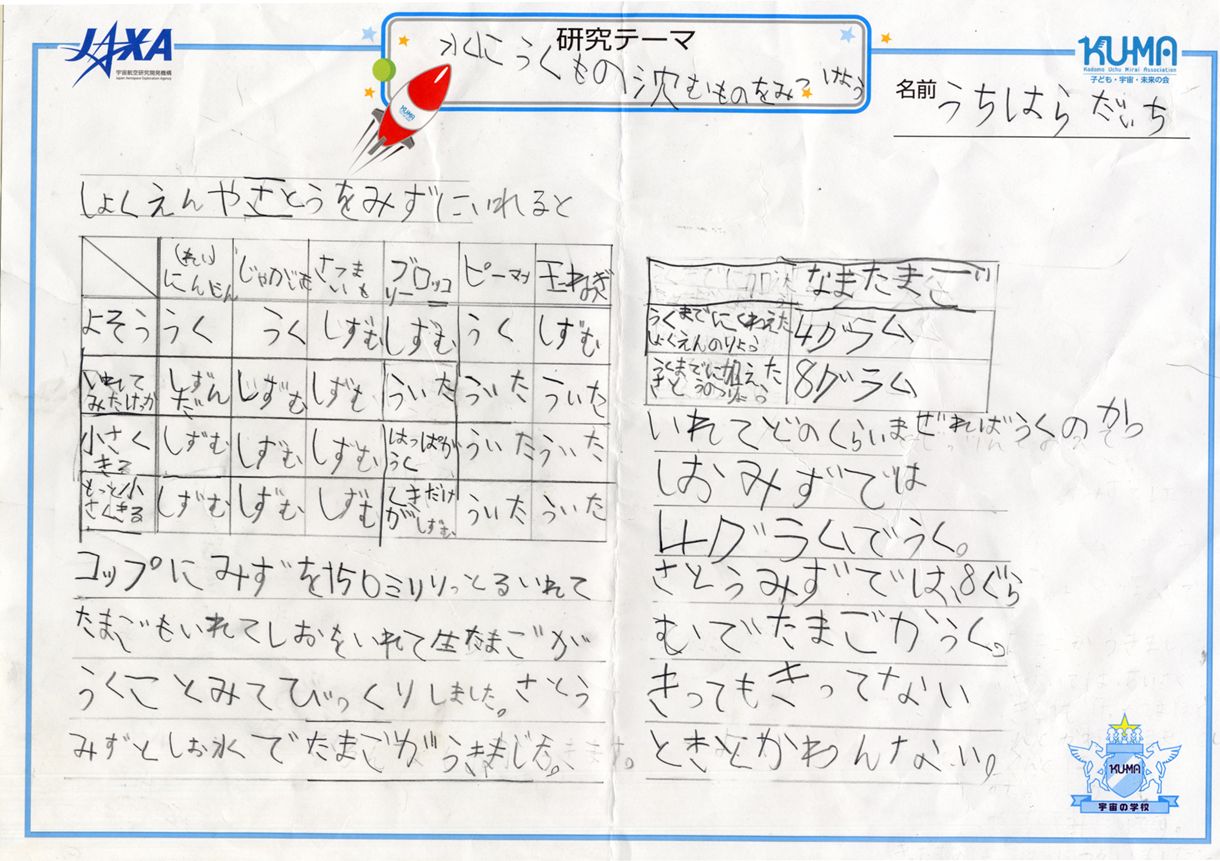 JAXA
宇宙航空研究開発機構
Japan Aerospace Exploration Agency
研究テーマ
水にうくもの沈むものをみつけよう
KUMA
Kodomo Uchu Mirai Association
子ども・宇宙・未来の会
名前 うちはらだいち
KUMA
しょくえんやさとうをみずにいれると
(れい)にんじん じゃがいも さつまいも ブロッコリー ピーマン 玉ねぎ
よそう うく うく しずむ しずむ うく しずむ
いれてみたけっか しずんだ しずむ しずむ ういた ういた ういた
小さくきる しずむ しずむ しずむ はっぱがうく ういた ういた
もっと小さくきる しずむ しずむ しずむ くきだけがしずむ ういた ういた
コップにみずを150ミリりっとるいれて
たまごもいれてしおをいれて生たまごが
うくことみててびっくりしました。さとう
みずとしお水でたまごがうきました。
なまたまご
うくまでにくわえたしょくえんのりょう 4グラム
うくまでに加えたさとうのりょう 8グラム
いれてどのくらいまぜればうくのかっ
しおみずでは
4グラムでうく。
さとうみずでは、8ぐら
むでたまごがうく。
きってもきってない
ときとかわんない。
KUMA
宇宙の学校